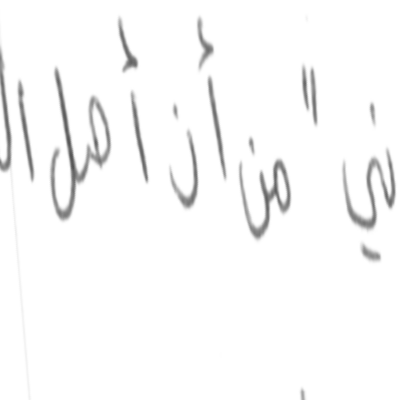 ني " من أن أصل ال